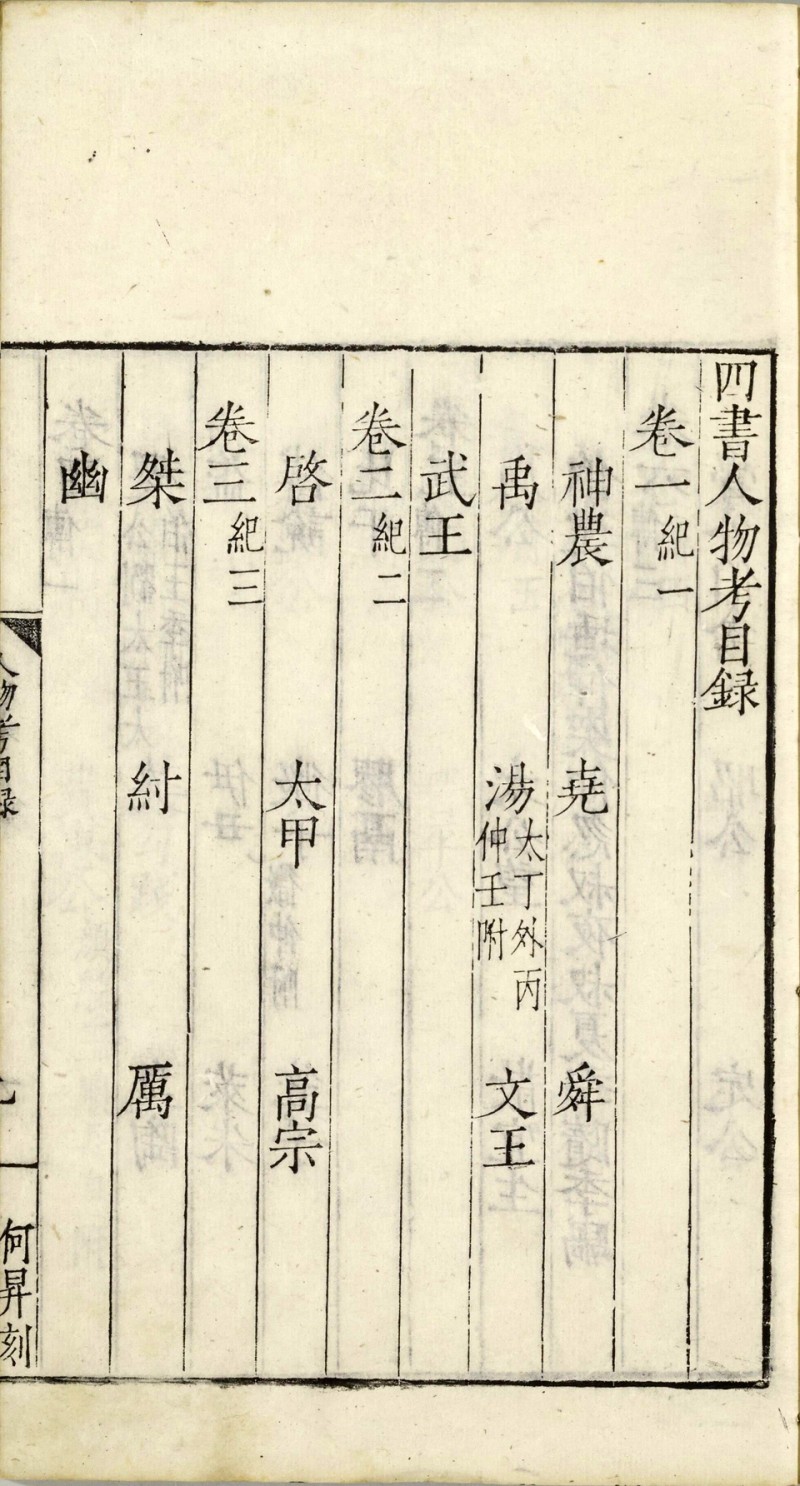 四書人物考目録
卷一紀一
神農 堯 舜
禹 湯太丁外丙仲壬附 文王
武王
卷二紀二
啓 太甲 高宗
卷三紀三
桀 紂 厲
幽
人物考目録 何昇刻